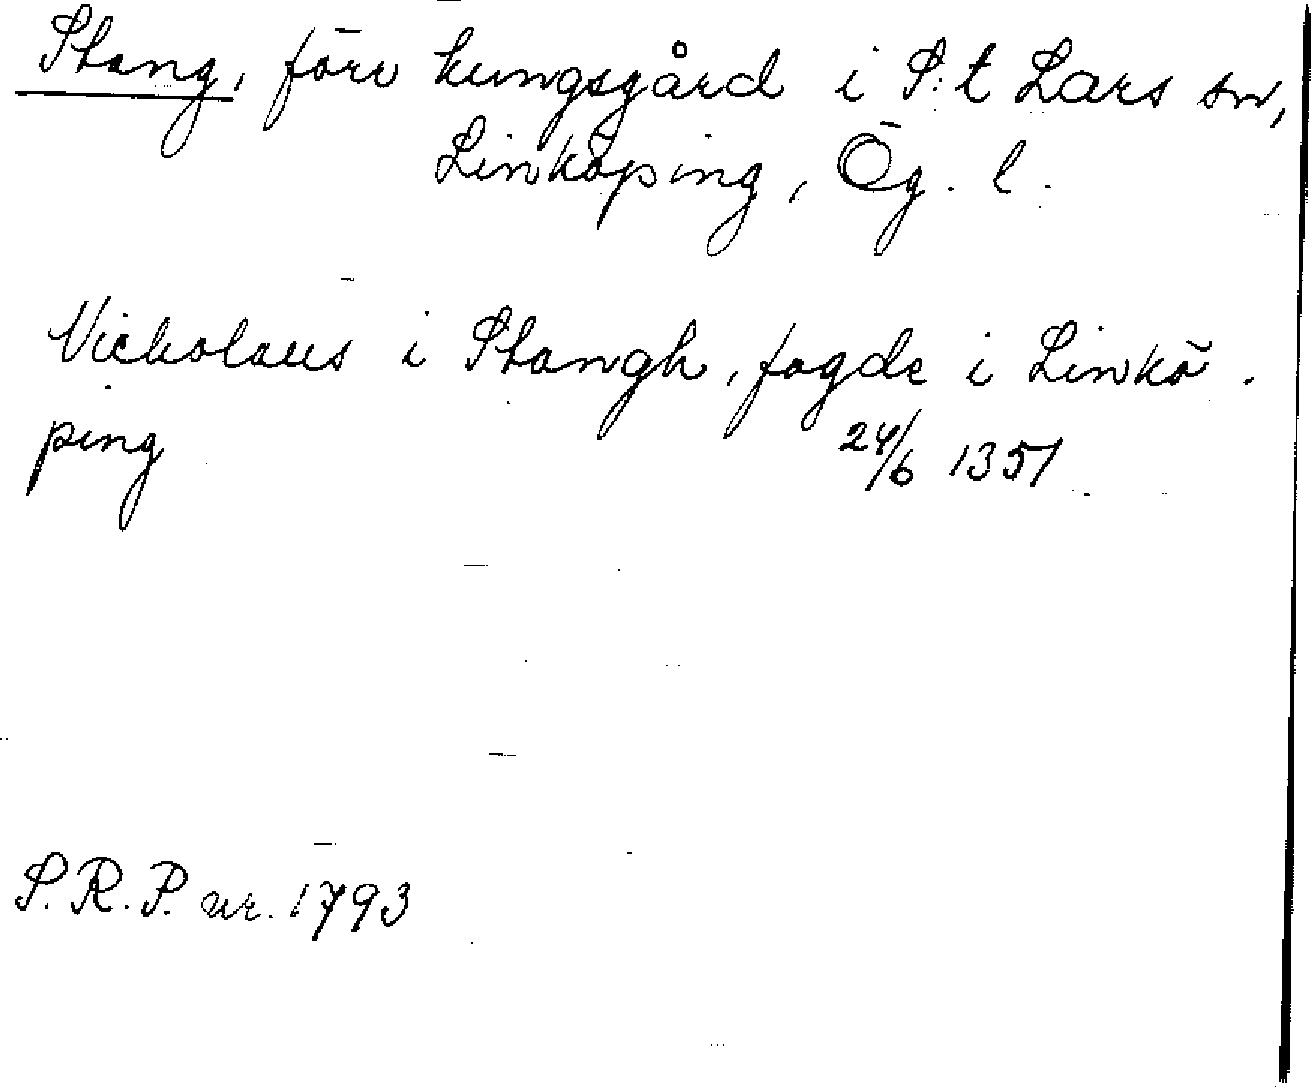 Stang, förv kungsgård i S:t Lars sn,
Linköping, Ög. l.
Nickolaus i Stangh, fogde i Linkö-
ping 24/6 1351
S.R.P. nr. 1793